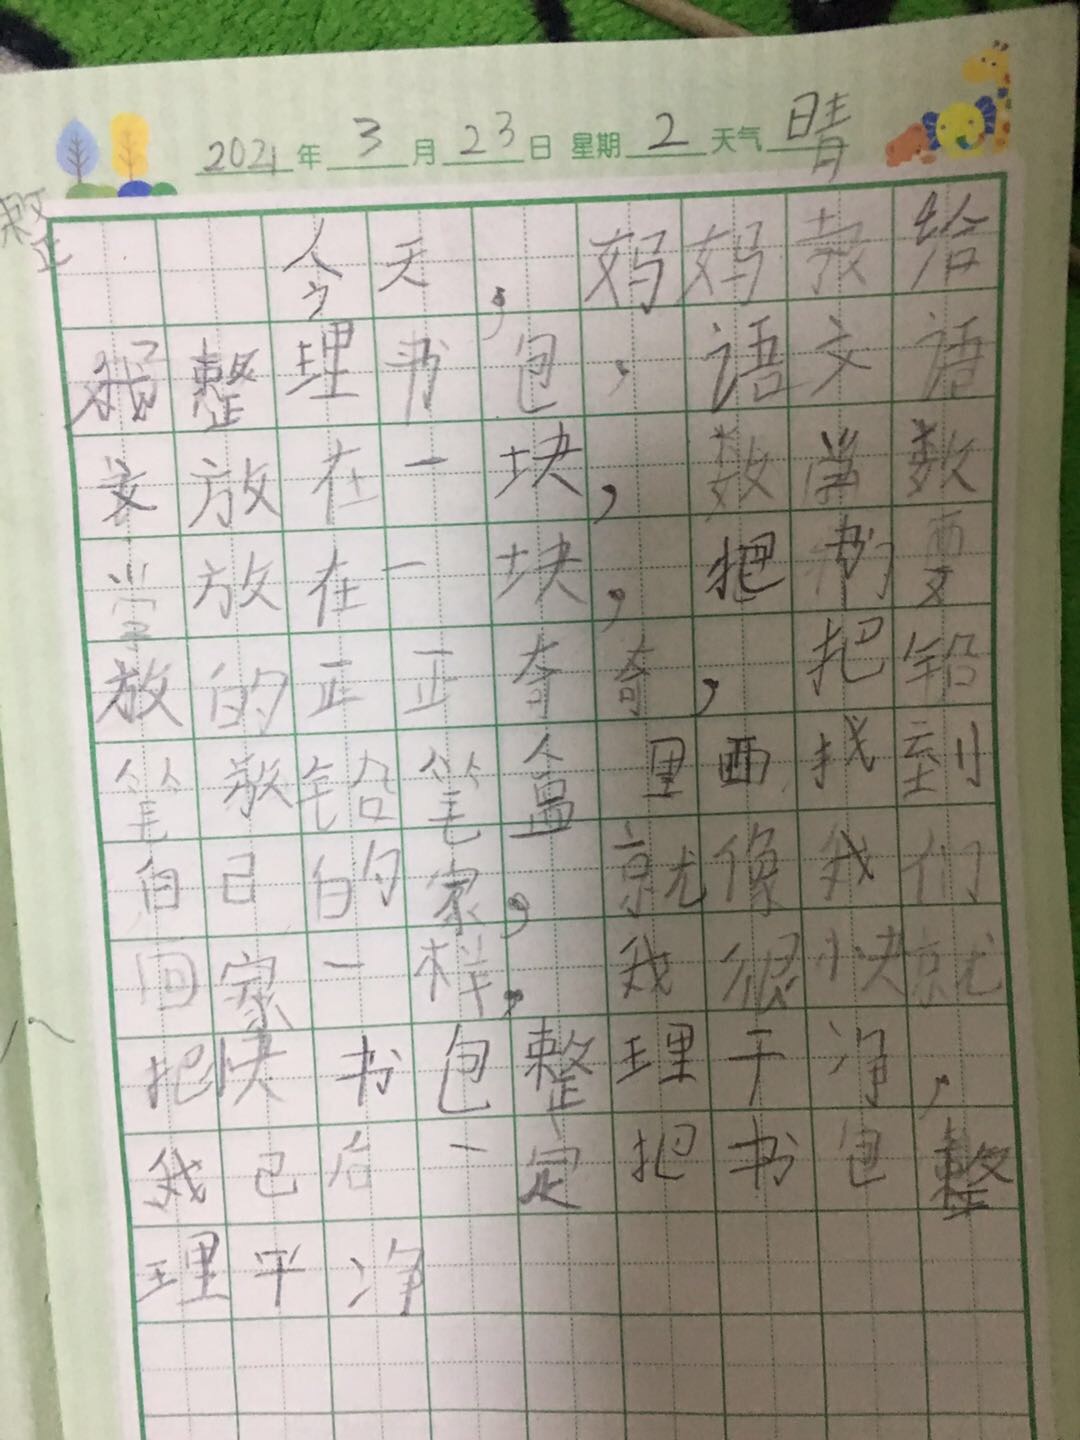 2021年3月23日 星期2天气晴
整
今天，妈妈教给
我整理书包，语文语
文放在一块，数学数
学放在一块，把书要
放的正正奇奇，把铅
笔放铅笔盒里面找到
自己的家，就像我们
回家一样，我很快就
把快书包整理干净，
我已后一定把书包整
理平净